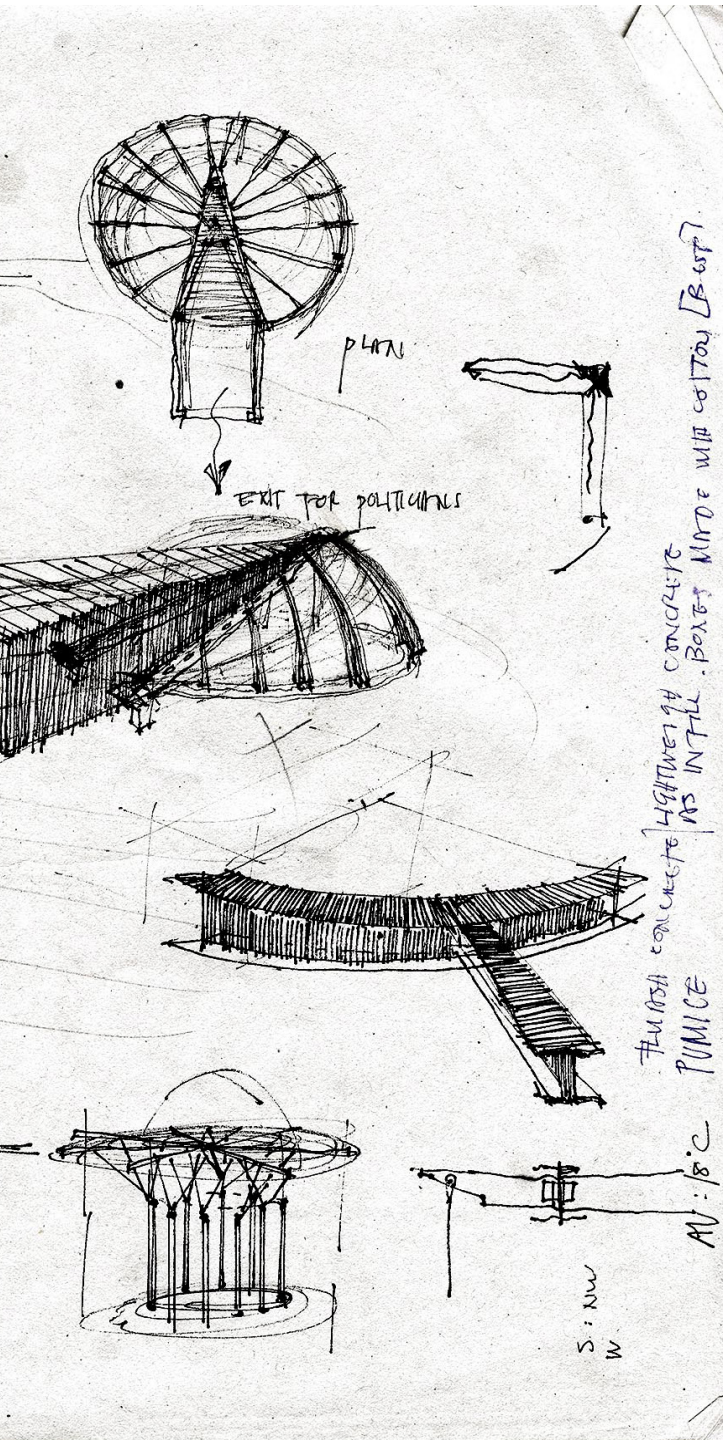 PLAN
EXIT FOR POLITICIANS
FLYASH CONCRETE/LIGHTWEIGH CONCRETE
AS INFILL. BOXES MADE WITH COTTON
PUMICE
AV : 18°C
S : NW
W